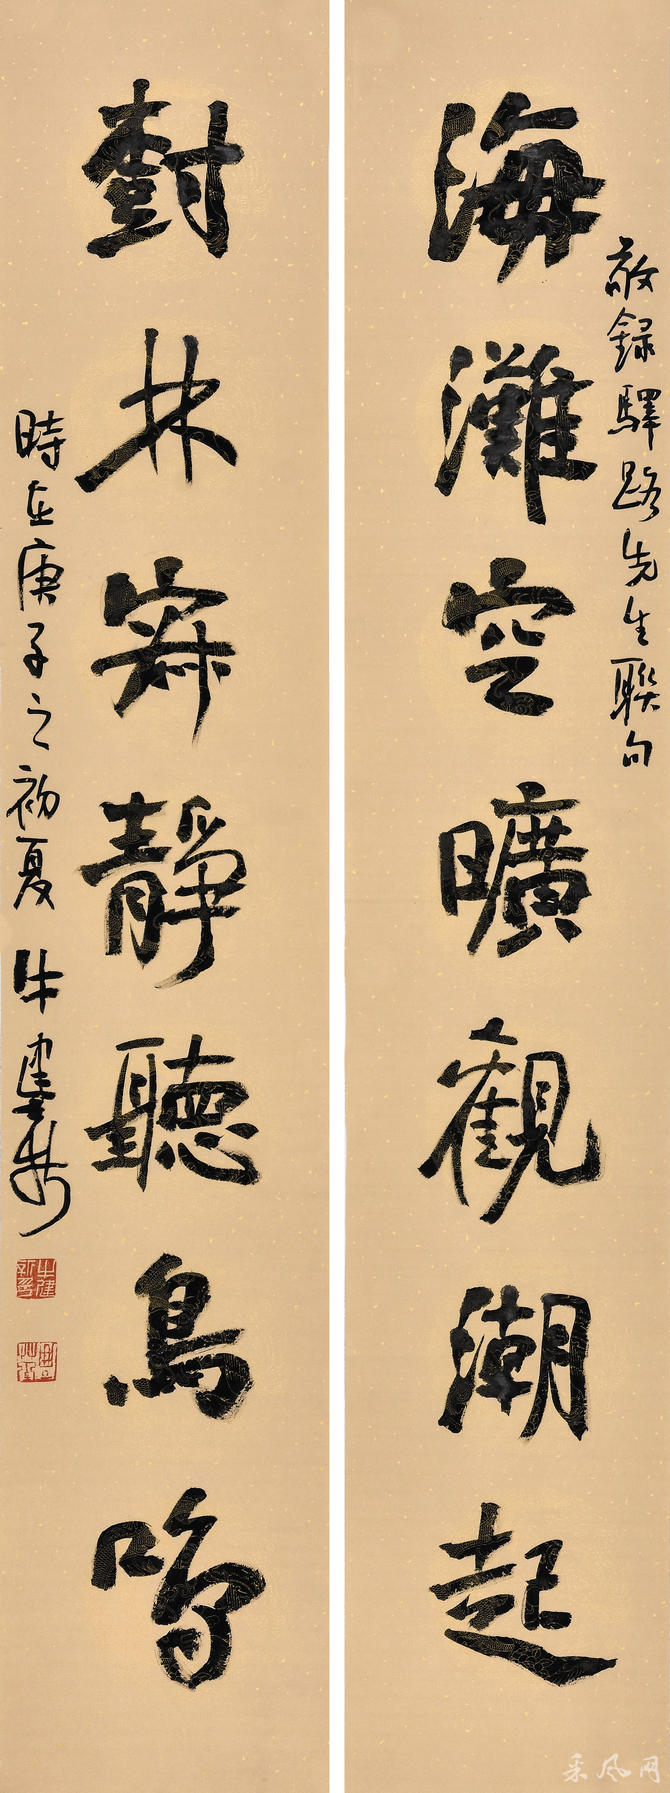 敬録驛路先生聯句
海灘空曠觀潮起
對林寂靜聽鳥鳴
時在庚子之初夏 牛建新
采风网